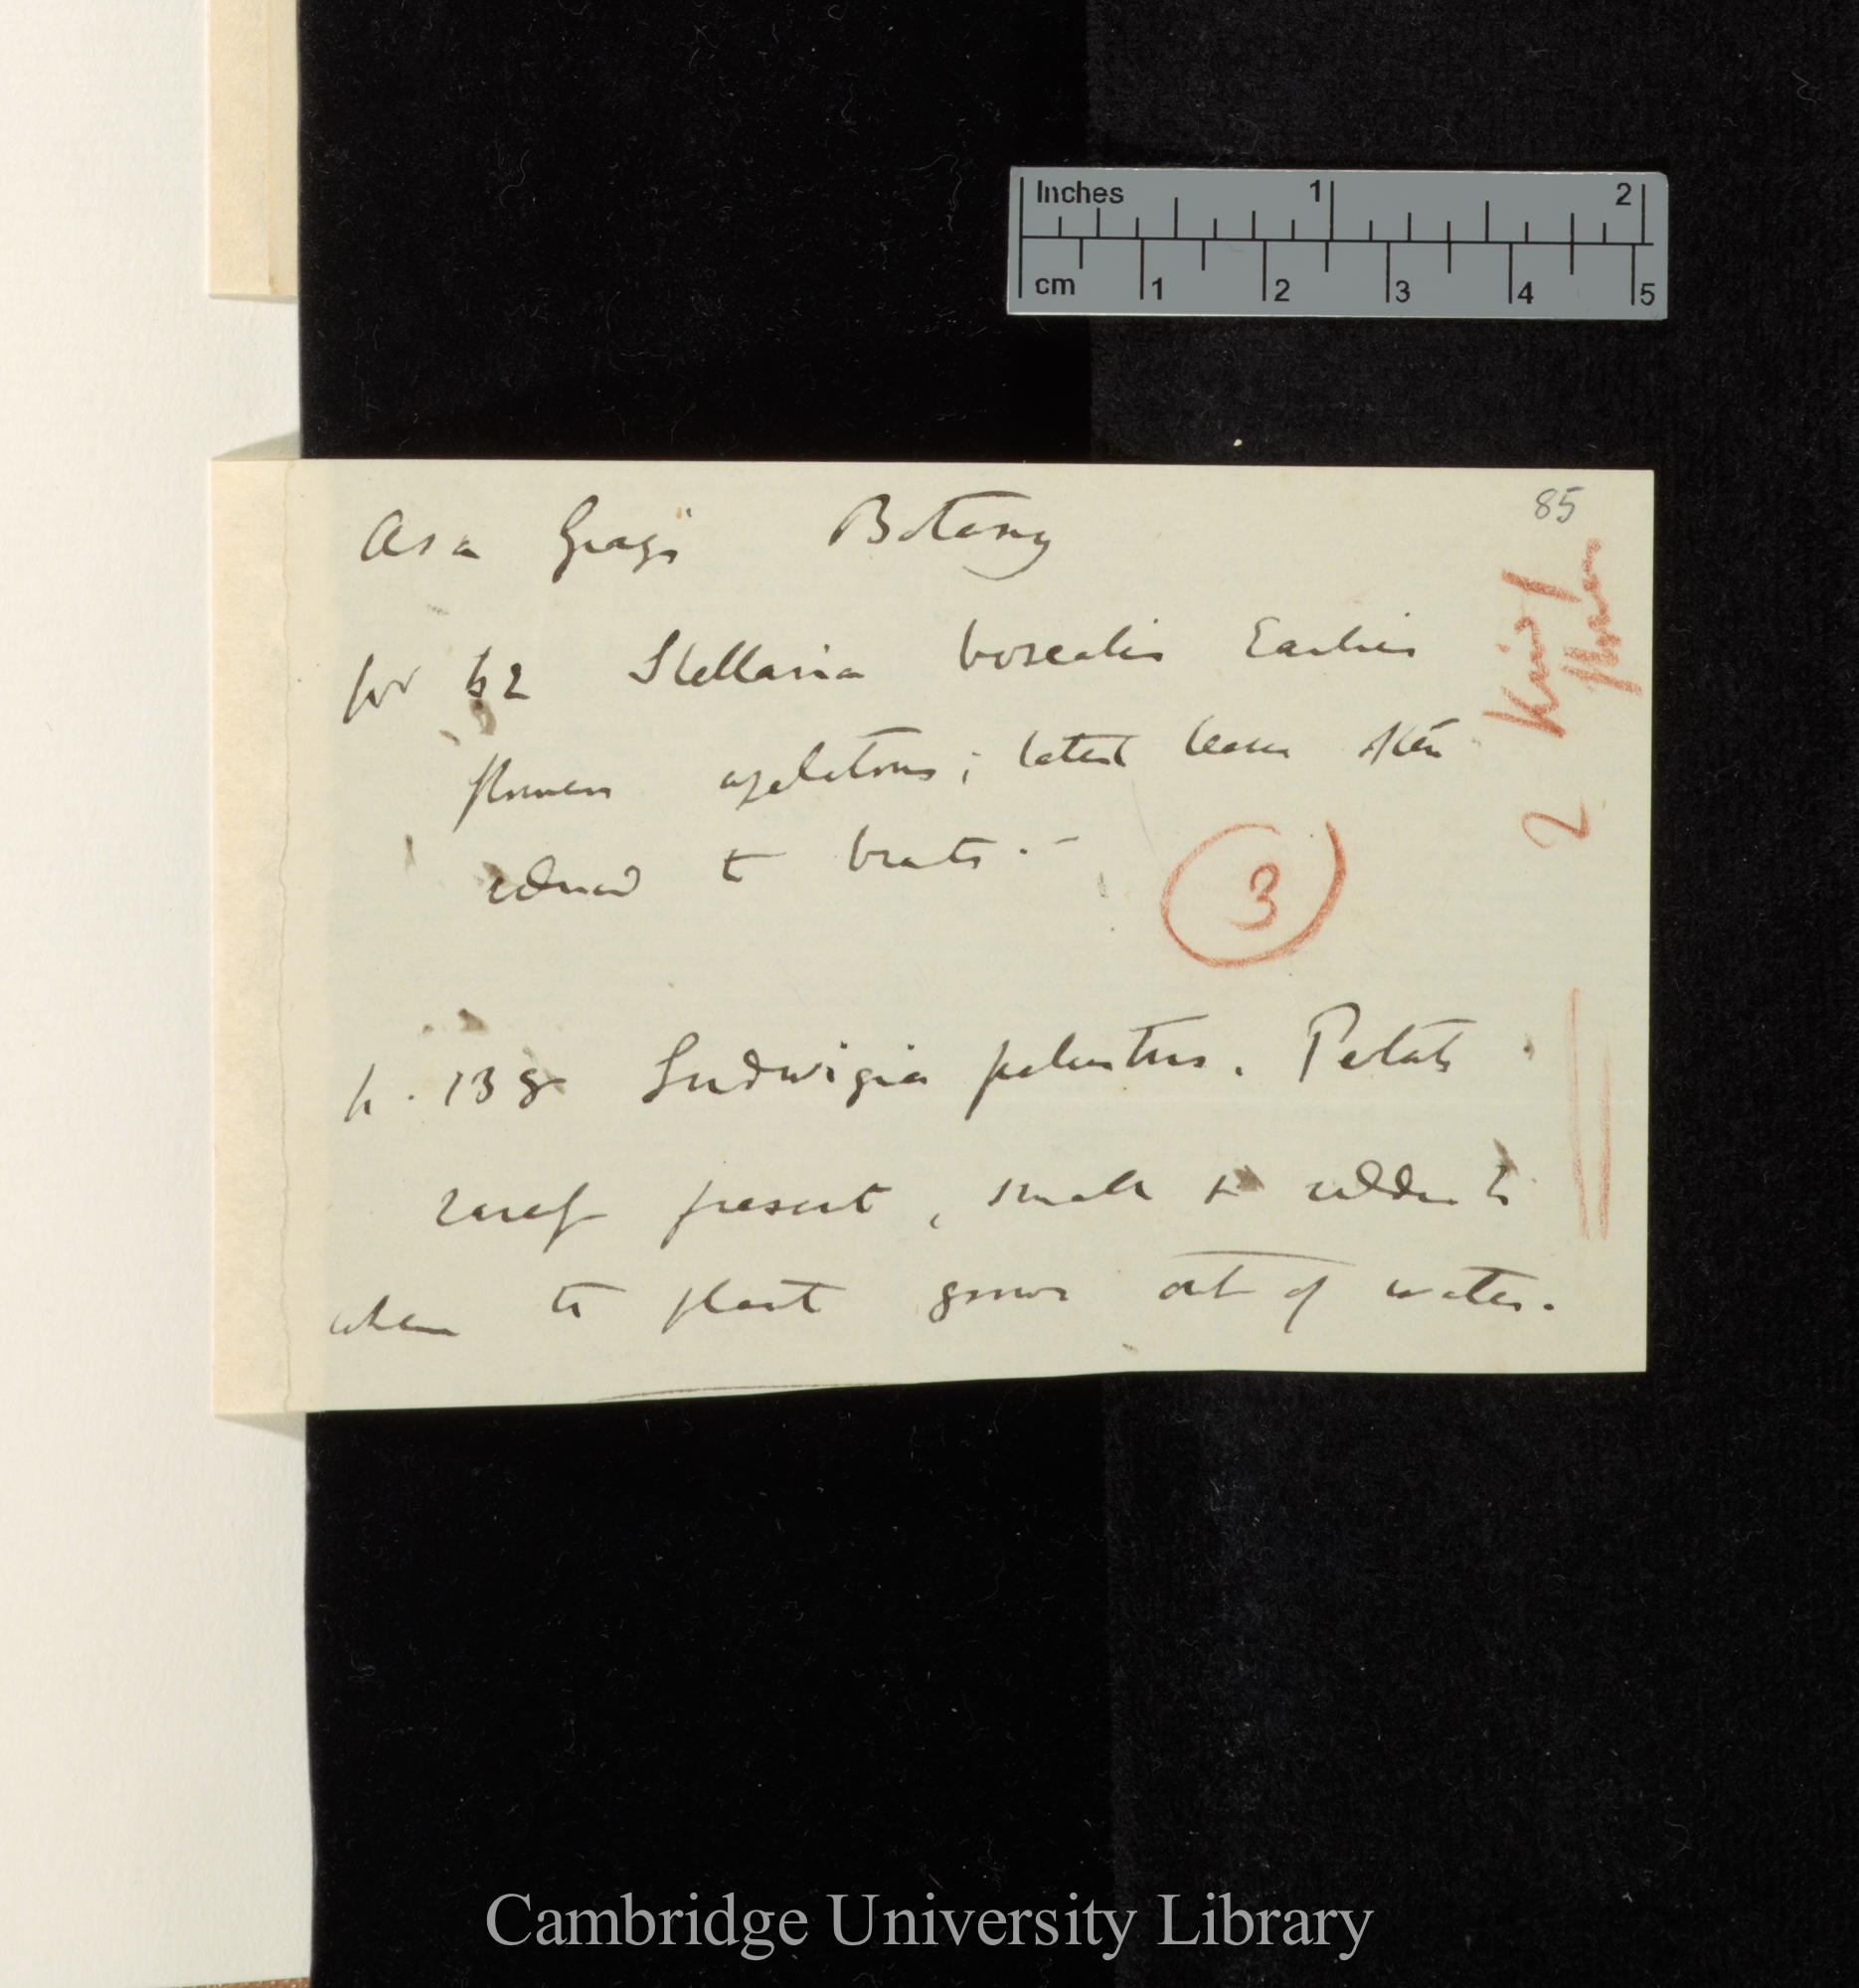 Inches 1 2
cm 1 2 3 4 5
85
Asa Gray's Botany
for 62 Stellaria borealis Earlier
flowers apetalous; latest leaves often
reduced to bracts. —
3
2 Kinds flowers
p. 138 Ludwigia palustris. Petals
rarely present, small & reddish
when the plant grows out of water.
Cambridge University Library